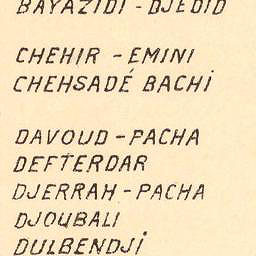 BAYAZIDI - DJEDID
CHEHIR - EMINI
CHEHSADÉ BACHI
DAVOUD - PACHA
DEFTERDAR
DJERRAH - PACHA
DJOUBALI
DULBENDJI